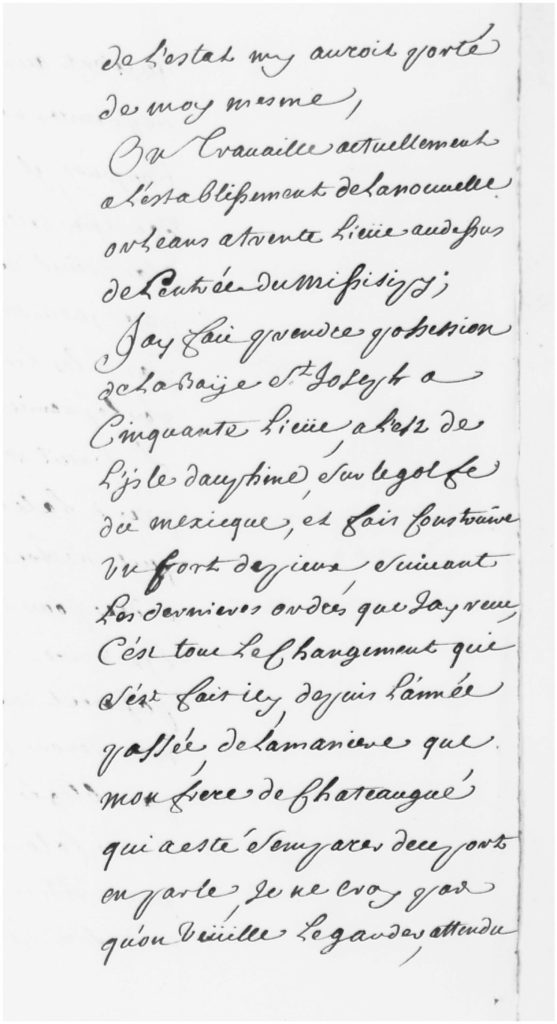 de l'estat my auroit porté
de moy mesme,
On Travaille actuellement
a l'establissement de la nouvelle
orleans a trente Lieüe au dessus
de L'entrée du Missisipy;
J'ay fait prendre possession
de la Baÿe St. Joseph a
Cinquante Lieüe, a l'est de
L'jsle dauphine, Sur le golfe
du mexicque, et fais Construire
un fort de pieux, Suivant
Les dernieres ordrés que J'ay receu,
C'ést tout Le Changement qui
S'ést fait icy depuis L'année
passée, de la maniere que
mon frere de Chateaugué
qui a esté S'emparer de ce port
en parle, Je ne croy pas
qu'on Veüille Le garder, attendu